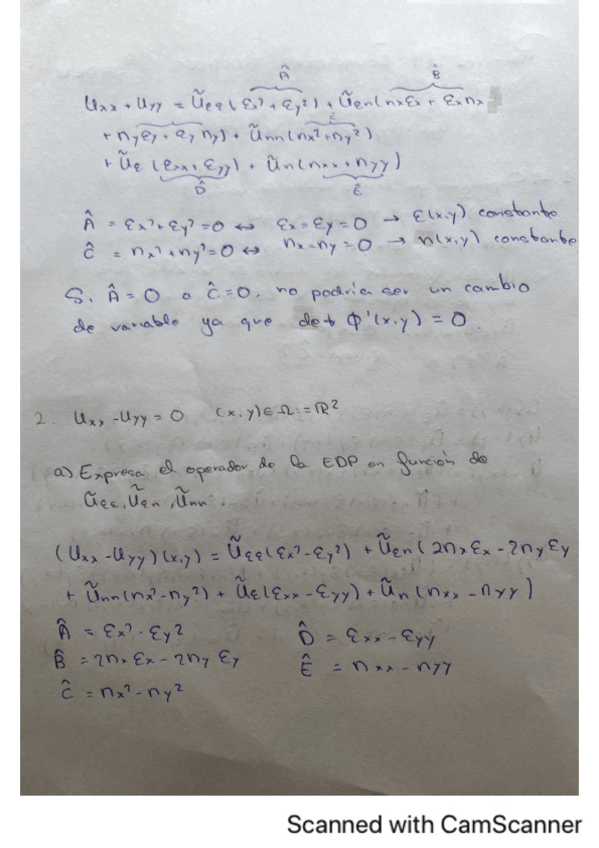 Â B̂
Uxx + Uyy = Ũεε(εx² + εy²) + Ũεn(nxεx + εxnx
Ĉ
+ nyεy + εyny) + Ũnn(nx² + ny²)
+ Ũε(εxx + εyy) + Ũn(nxx + nyy)
D̂ Ê
Â = εx² + εy² = 0 ↔ εx = εy = 0 → ε(x,y) constante
Ĉ = nx² + ny² = 0 ↔ nx = ny = 0 → n(x,y) constante
Si Â = 0 o Ĉ = 0, no podría ser un cambio
de variable ya que det Φ'(x,y) = 0.
2. Uxx - Uyy = 0 (x,y) ∈ Ω := ℝ²
a) Expresa el operador de la EDP en función de
Ũεε, Ũεn, Ũnn.
(Uxx - Uyy)(x,y) = Ũεε(εx² - εy²) + Ũεn(2nxεx - 2nyεy
+ Ũnn(nx² - ny²) + Ũε(εxx - εyy) + Ũn(nxx - nyy)
Â = εx² - εy² D̂ = εxx - εyy
B̂ = 2nxεx - 2nyεy Ê = nxx - nyy
Ĉ = nx² - ny²
Scanned with CamScanner